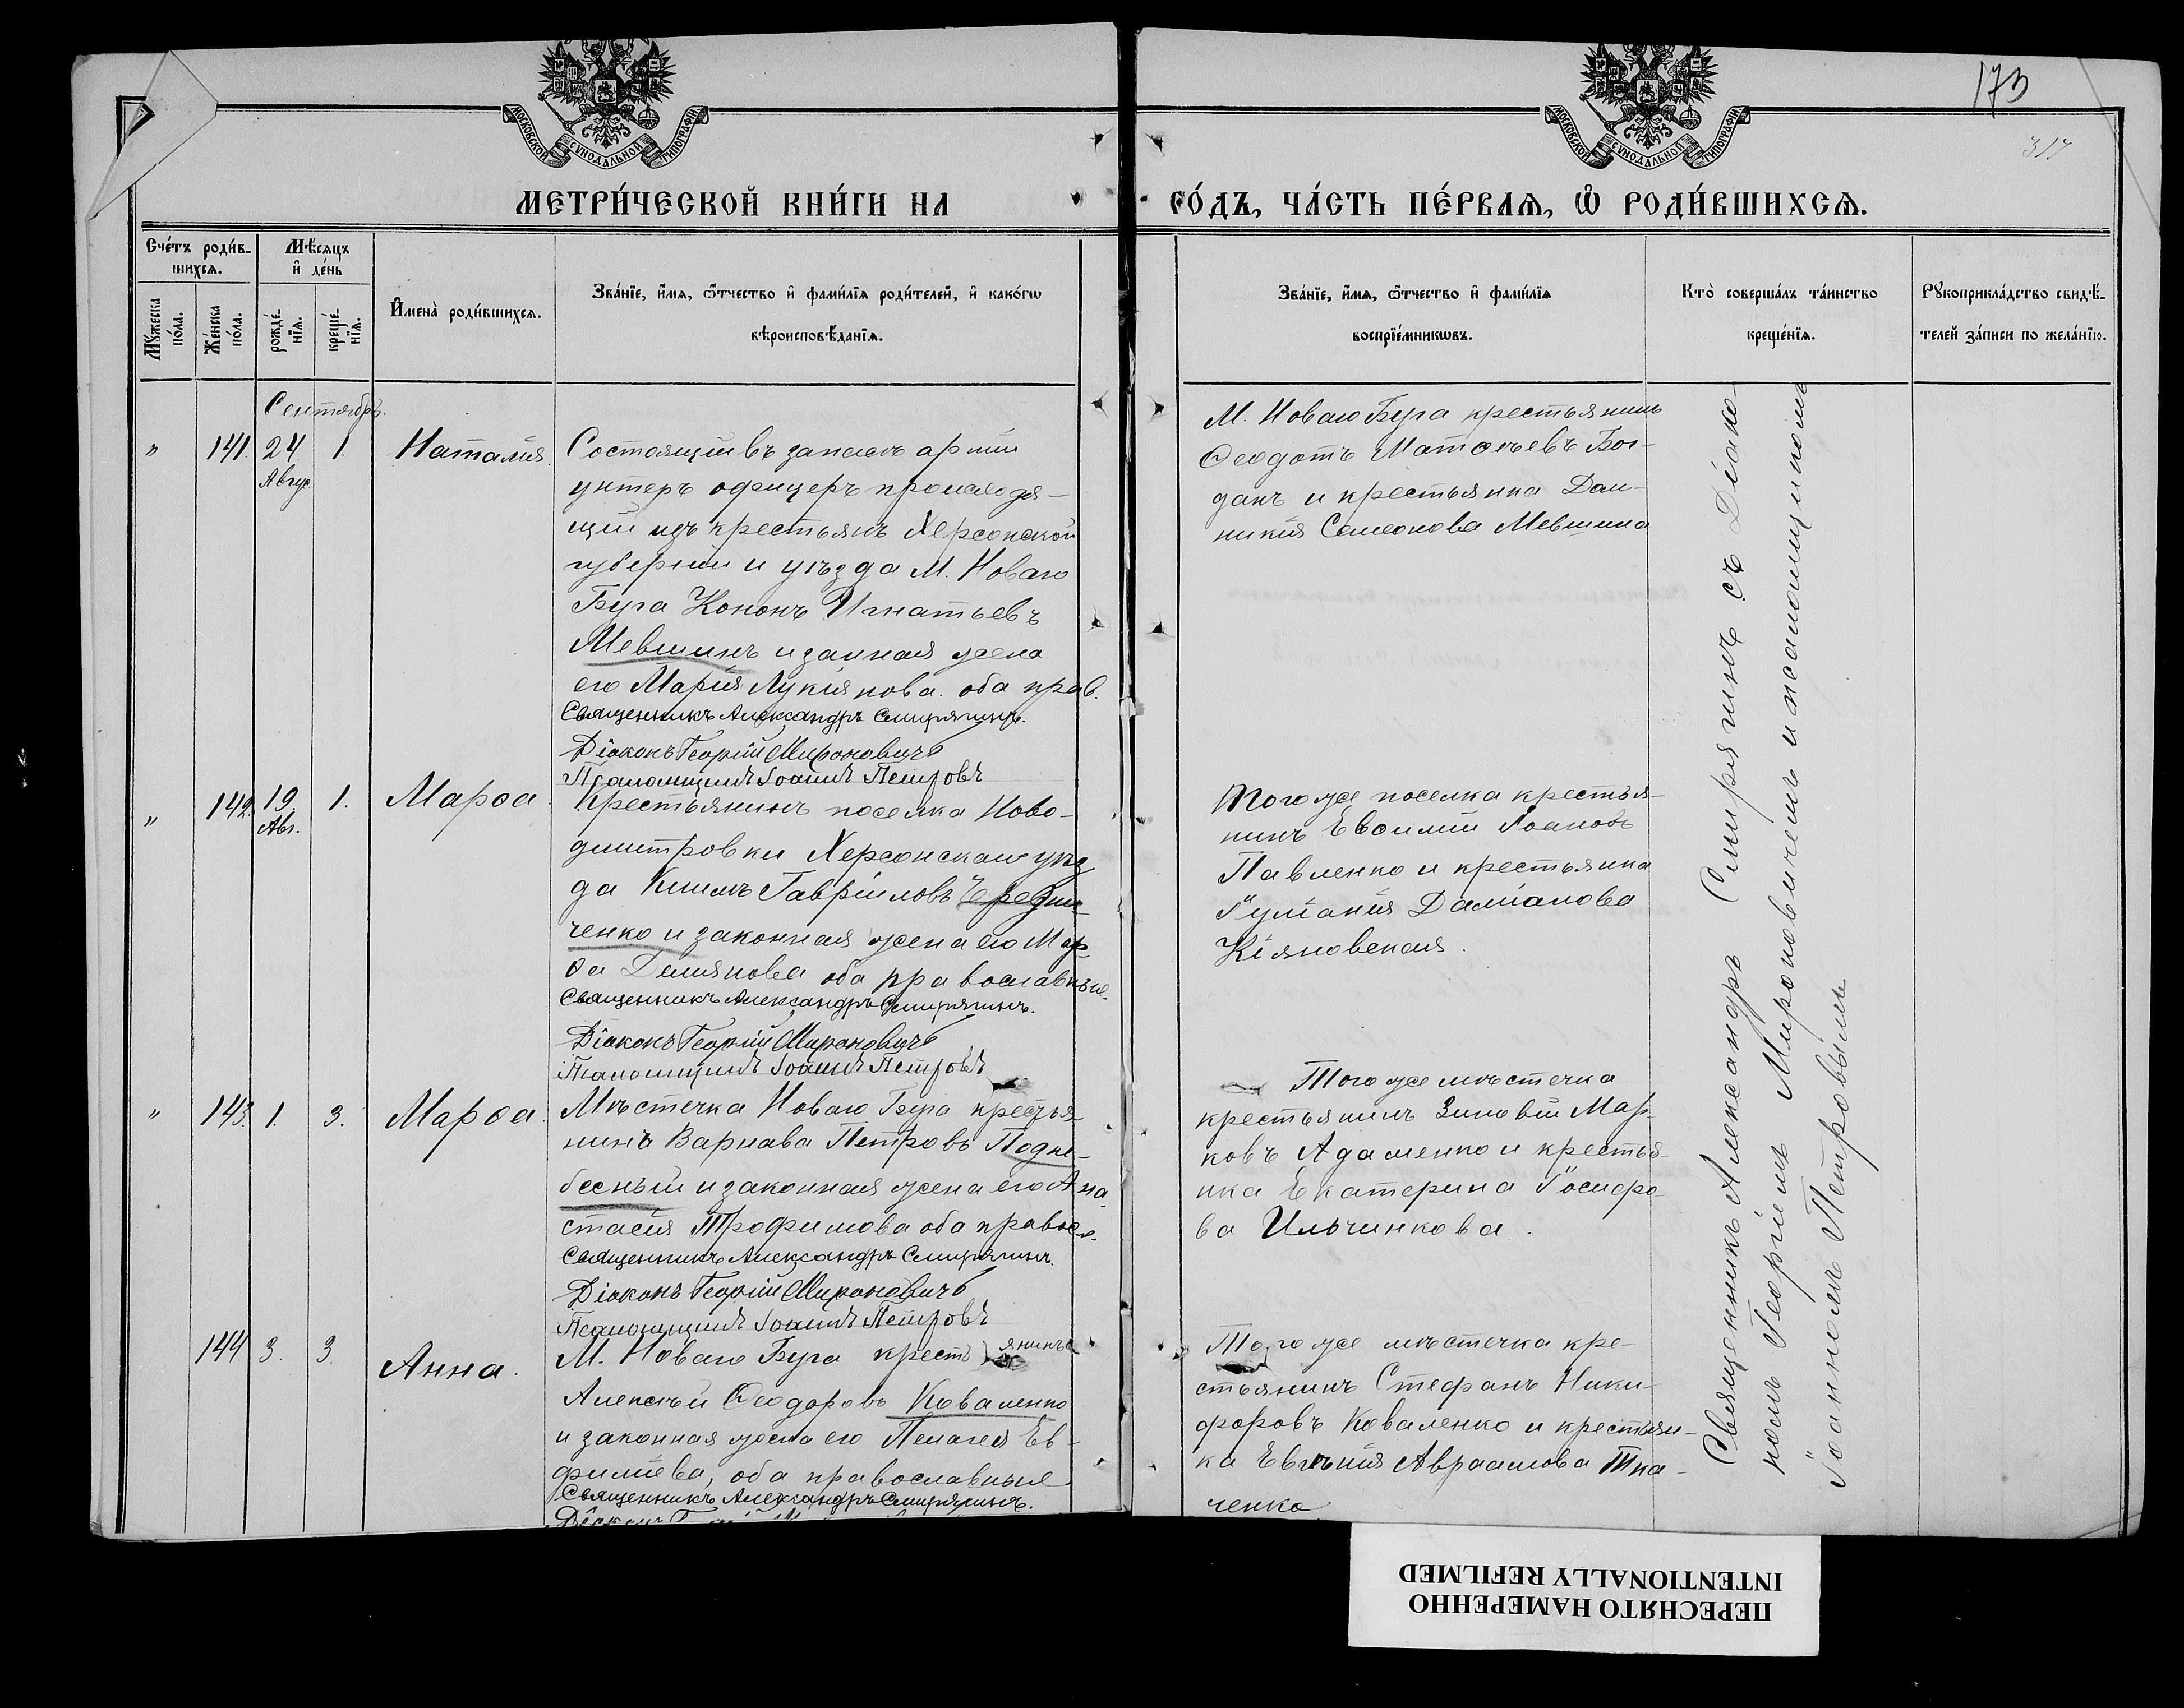 МОСКОВСКОЙ СѴНОДАЛЬНОЙ ТИПОГРАФІИ
МОСКОВСКОЙ СѴНОДАЛЬНОЙ ТИПОГРАФІИ
173
317
МЕТРИ́ЧЕСКОЙ КНИ́ГИ НА
ГО́ДЪ, ЧА́СТЬ ПЕ́РВАѦ, Ѡ РОДИ́ВШИХСѦ.
Сче́тъ роди́в-
шихсѧ.
Мѣ́сѧцъ
и҆ де́нь
Мꙋжеска по́ла.
Же́нска по́ла.
рожде́нїѧ.
креще́нїѧ.
И҆мена̀ роди́вшихсѧ.
Зва́нїе, и҆́мѧ, ѻ҆́тчество и҆ фами́лїѧ роди́телей, и҆ како́гѡ
вѣроисповѣ́данїѧ.
Зва́нїе, и҆́мѧ, ѻ҆́тчество и҆ фами́лїѧ
воспрїе́мникѡвъ.
Кто̀ соверша́лъ та́инство
креще́нїѧ.
Рꙋкоприкла́дство свидѣ́-
телей за́писи по жела́нїю.
Сентябрь.
" 141. 24 Авгус. 1 Наталія.
Состоящій въ запасѣ арміи
унтеръ офицеръ происходя-
щій изъ крестьянъ Херсонской
губерніи и уѣзда М. Новаго
Буга Кононъ Игнатьевъ
Мевшинъ и законная жена
его Марія Лукіянова. оба прав.
Священникъ Александръ Смирягинъ.
Діаконъ Георгій Мироновичъ
Псаломщикъ Іоаннъ Петровъ
М. Новаго Буга крестьянинъ
Ѳеодотъ Матѳеевъ Бог-
данъ и крестьянка Дом-
никія Симеонова Мевшина
" 142. 19. Авг. 1. Марѳа.
Крестьянинъ поселка Ново-
дмитровки Херсонскаго уѣз
да Климъ Гавріиловъ Чередни-
ченко и законная жена его Мар-
ѳа Демянова оба православные.
Священникъ Александръ Смирягинъ.
Діаконъ Георгій Мироновичъ
Псаломщикъ Іоаннъ Петровъ
Того же поселка крестья-
нинъ Евѳимій Іоановъ
Павленко и крестьянка
Іуліанія Даміанова
Кіяновская.
" 143. 1. 3. Марѳа.
Мѣстечка Новаго Буга крестья-
нинъ Варнава Петровъ Подне-
бесный и законная жена его Ана
стасія Трофимова оба правосл.
Священникъ Александръ Смирягинъ.
Діаконъ Георгій Мироновичъ
Псаломщикъ Іоаннъ Петровъ
Того же мѣстечка
крестьянинъ Зиновій Мар-
ковъ Адаменко и крестья-
нка Екатерина Іосифо-
ва Ильчинкова.
144 3. 3. Анна.
М. Новаго Буга крестьянинъ
Алексѣй Ѳеодоровъ Коваленко
и законная жена его Пелагея Ев-
фиміева, оба православные
Священникъ Александръ Смирягинъ.
Діаконъ
Того же мѣстечка кре-
стьянинъ Стефанъ Ники-
форовъ Коваленко и крестьян-
ка Евгенія Авраамова Тка-
ченко
Священникъ Александръ Смирягинъ съ Діако-
номъ Георгіемъ Мироновичемъ и псаломщикомъ
Іоанномъ Петровымъ
ПЕРЕСНЯТО НАМЕРЕННО
INTENTIONALLY REFILMED